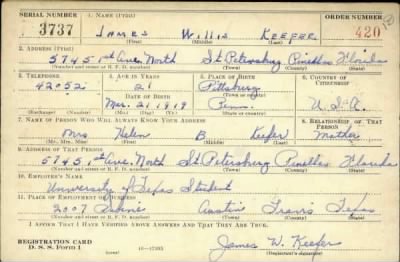 SERIAL NUMBER 1. NAME (Print) ORDER NUMBER
3737 JAMES Willis KEEFER 420
(First) (Middle) (Last)
2. ADDRESS (Print)
5745 1st Ave. North St. Petersburg Pinellas Florida
(Number and street or R. F. D. number) (Town) (County) (State)
3. TELEPHONE 4. AGE IN YEARS 5. PLACE OF BIRTH 6. COUNTRY OF CITIZENSHIP
42-052 21 Pittsburg
DATE OF BIRTH (Town or county)
Mar. 21 1919 Penn. U.S.A.
(Mo.) (Day) (Yr.) (State or country)
7. NAME OF PERSON WHO WILL ALWAYS KNOW YOUR ADDRESS 8. RELATIONSHIP OF THAT PERSON
Mrs Helen B Keefer Mother
(Mr., Mrs., Miss) (First) (Middle) (Last)
9. ADDRESS OF THAT PERSON
5745 1st Ave. North St. Petersburg Pinellas Florida
(Number and street or R. F. D. number) (Town) (County) (State)
10. EMPLOYER'S NAME
University of Texas Student
11. PLACE OF EMPLOYMENT OR BUSINESS
2007 Austin Travis Texas
(Number and street or R. F. D. number) (Town) (County) (State)
I AFFIRM THAT I HAVE VERIFIED ABOVE ANSWERS AND THAT THEY ARE TRUE.
REGISTRATION CARD
D. S. S. Form 1 16—17105 James W. Keefer
(Registrant's signature)